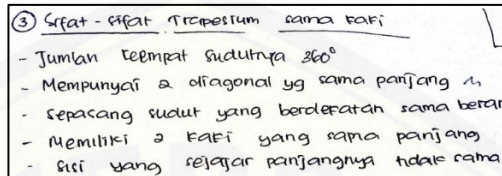 ③ Sifat-sifat Trapesium sama kaki
- Jumlah keempat sudutnya 360°
- Mempunyai 2 diagonal yg sama panjang
- sepasang sudut yang berdekatan sama besar
- Memiliki 2 kaki yang sama panjang
- sisi yang sejajar panjangnya tidak sama